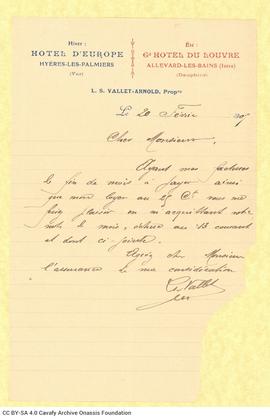 Hiver :
HOTEL D'EUROPE
HYÈRES-LES-PALMIERS
(Var)
Été :
Gd HOTEL DU LOUVRE
ALLEVARD-LES-BAINS (Isère)
(Dauphiné)
L. S. VALLET-ARNOLD, Propre
Le 20 Février
Cher Monsieur,
Ayant mes factures
de fin de mois à payer ainsi
que mon loyer au 25 Ct vous me
plaisir en m'acquittant votre
note le mois, au 13 courant
et dont ci-jointe.
Agréez cher Monsieur
l'assurance de ma considération
Vallet
CC BY-SA 4.0 Cavafy Archive Onassis Foundation